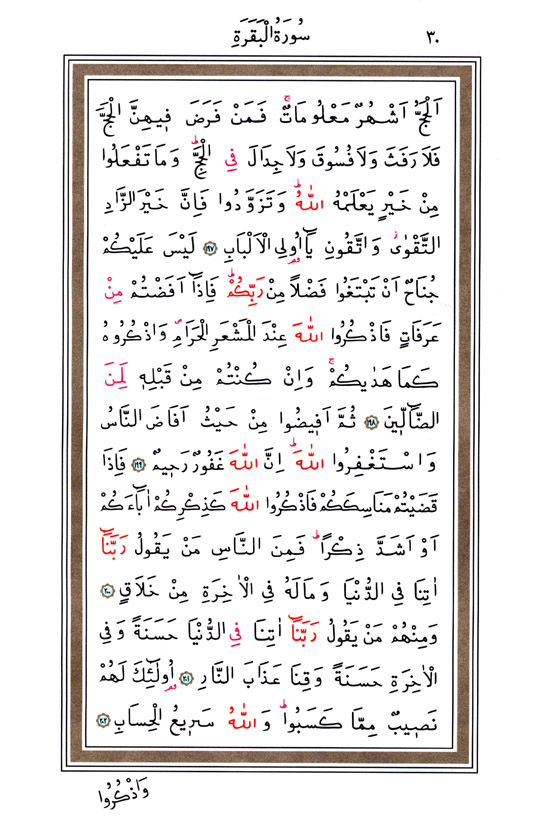 سُورَةُ الْبَقَرَةِ ٣٠
اَلْحَجُّ اَشْهُرٌ مَعْلُومَاتٌۚ فَمَنْ فَرَضَ فٖيهِنَّ الْحَجَّ
فَلَا رَفَثَ وَلَا فُسُوقَ وَلَا جِدَالَ فِي الْحَجِّؕ وَمَا تَفْعَلُوا
مِنْ خَيْرٍ يَعْلَمْهُ اللّٰهُؕ وَتَزَوَّدُوا فَاِنَّ خَيْرَ الزَّادِ
التَّقْوٰىؗ وَاتَّقُونِ يَٓا اُو۬لِي الْاَلْبَابِ ﴿١٩٧﴾ لَيْسَ عَلَيْكُمْ
جُنَاحٌ اَنْ تَبْتَغُوا فَضْلًا مِنْ رَبِّكُمْؕ فَاِذَٓا اَفَضْتُمْ مِنْ
عَرَفَاتٍ فَاذْكُرُوا اللّٰهَ عِنْدَ الْمَشْعَرِ الْحَرَامِࣕ وَاذْكُرُوهُ
كَمَا هَدٰيكُمْۚ وَاِنْ كُنْتُمْ مِنْ قَبْلِهٖ لَمِنَ
الضَّٓالّٖينَ ﴿١٩٨﴾ ثُمَّ اَفٖيضُوا مِنْ حَيْثُ اَفَاضَ النَّاسُ
وَاسْتَغْفِرُوا اللّٰهَؕ اِنَّ اللّٰهَ غَفُورٌ رَحٖيمٌ ﴿١٩٩﴾ فَاِذَا
قَضَيْتُمْ مَنَاسِكَكُمْ فَاذْكُرُوا اللّٰهَ كَذِكْرِكُمْ اٰبَٓاءَكُمْ
اَوْ اَشَدَّ ذِكْرًاؕ فَمِنَ النَّاسِ مَنْ يَقُولُ رَبَّنَٓا
اٰتِنَا فِي الدُّنْيَا وَمَا لَهُ فِي الْاٰخِرَةِ مِنْ خَلَاقٍ ﴿٢٠٠﴾
وَمِنْهُمْ مَنْ يَقُولُ رَبَّنَٓا اٰتِنَا فِي الدُّنْيَا حَسَنَةً وَفِي
الْاٰخِرَةِ حَسَنَةً وَقِنَا عَذَابَ النَّارِ ﴿٢٠١﴾ اُو۬لٰٓئِكَ لَهُمْ
نَصٖيبٌ مِمَّا كَسَبُواؕ وَاللّٰهُ سَرٖيعُ الْحِسَابِ ﴿٢٠٢﴾
وَاذْكُرُوا